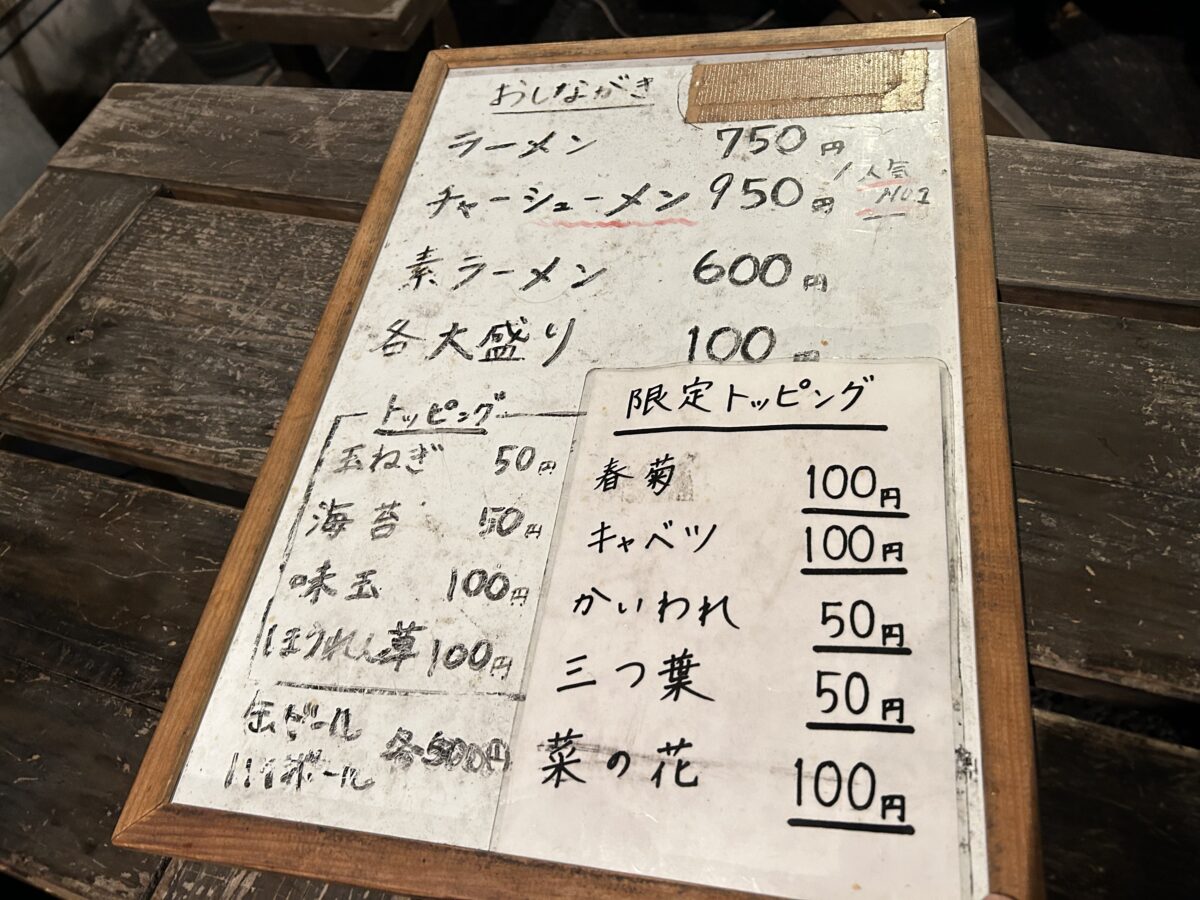 おしながき
ラーメン 750円
チャーシューメン 950円 人気No.1
素ラーメン 600円
各大盛り 100円
トッピング
玉ねぎ 50円
海苔 50円
味玉 100円
ほうれん草 100円
缶ビール
ハイボール 各500円
限定トッピング
春菊 100円
キャベツ 100円
かいわれ 50円
三つ葉 50円
菜の花 100円